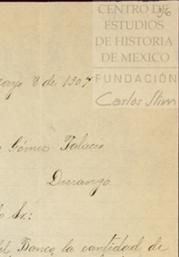 CENTRO DE
ESTUDIOS
DE HISTORIA
DE MEXICO
FUNDACIÓN
Carlos Slim
8 de 1907
Gómez Palacio
Durango.
Sr:
Banco, la cantidad de